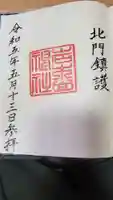 北門鎮護
令和五年五月十三日参拝